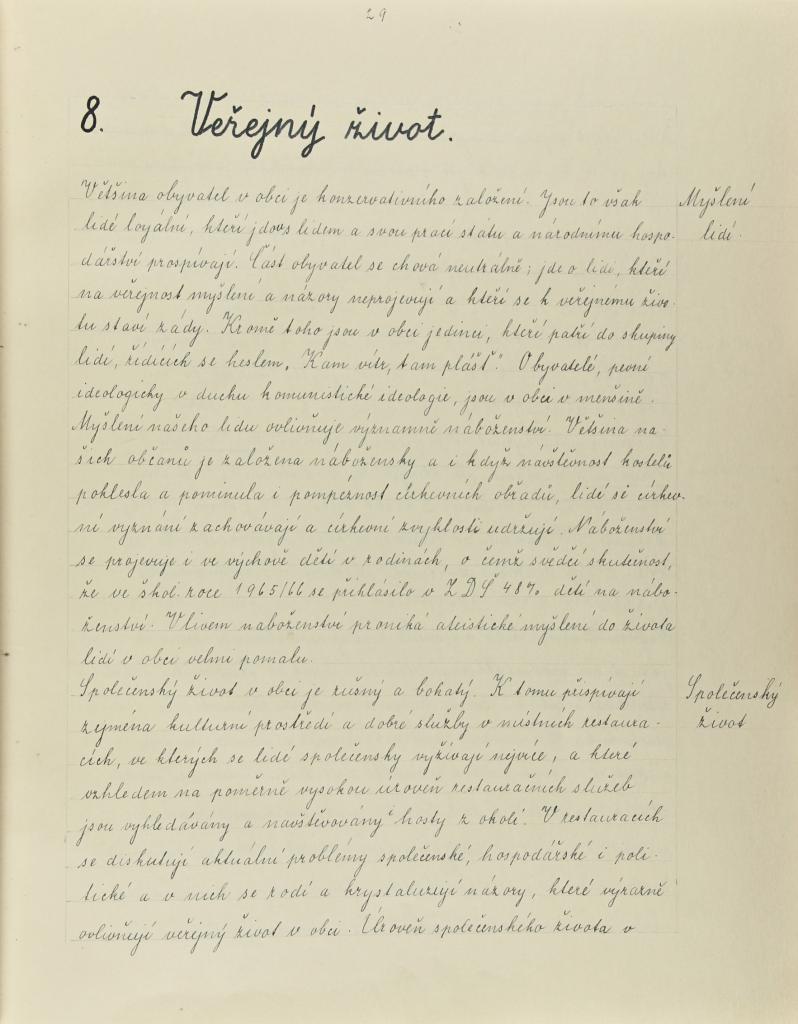 29
8. Veřejný život.
Většina obyvatel v obci je konzervativního založení. Jsou to však
Myšlení
lidé loyální, kteří jdou s lidem a svou prací státu a národnímu hospo-
lidí.
dářství prospívají. Část obyvatel se chová neutrálně; jde o lidi, kteří
na veřejnost myšlení a názory neprojevují a kteří se k veřejnému živo-
tu staví zády. Kromě toho jsou v obci jedinci, kteří patří do skupiny
lidí, řídících se heslem „Kam vítr, tam plášť." Obyvatelé, pevní
ideologicky v duchu komunistické ideologie, jsou v obci v menšině.
Myšlení našeho lidu ovlivňuje významně náboženství. Většina na-
šich občanů je založena nábožensky a i když návštěvnost kostelů
poklesla a pominula i pompéznost církevních obřadů, lidé si církev-
ní vyznání zachovávají a církevní zvyklosti udržují. Náboženství
se projevuje i ve výchově dětí v rodinách, o čemž svědčí skutečnost,
že ve škol. roce 1965/66 se přihlásilo v ZDŠ 48% dětí na nábo-
ženství. Vlivem naboženství proniká ateistické myšlení do života
lidí v obci velmi pomalu.
Společenský život v obci je rušný a bohatý. K tomu přispívají
Společenský
zejména kulturní prostředí a dobré služby v místních restaura-
život
cích, ve kterých se lidé společensky vyžívají nejvíce, a které
vzhledem na poměrně vysokou úroveň restauračních služeb
jsou vyhledávány a navštěvovány i hosty z okolí. V restauracích
se diskutují aktuální problémy společenské, hospodářské i poli-
tické a v nich se rodí a krystaluzují názory, které výrazně
ovlivňují veřejný život v obci. Úroveň společenského života v